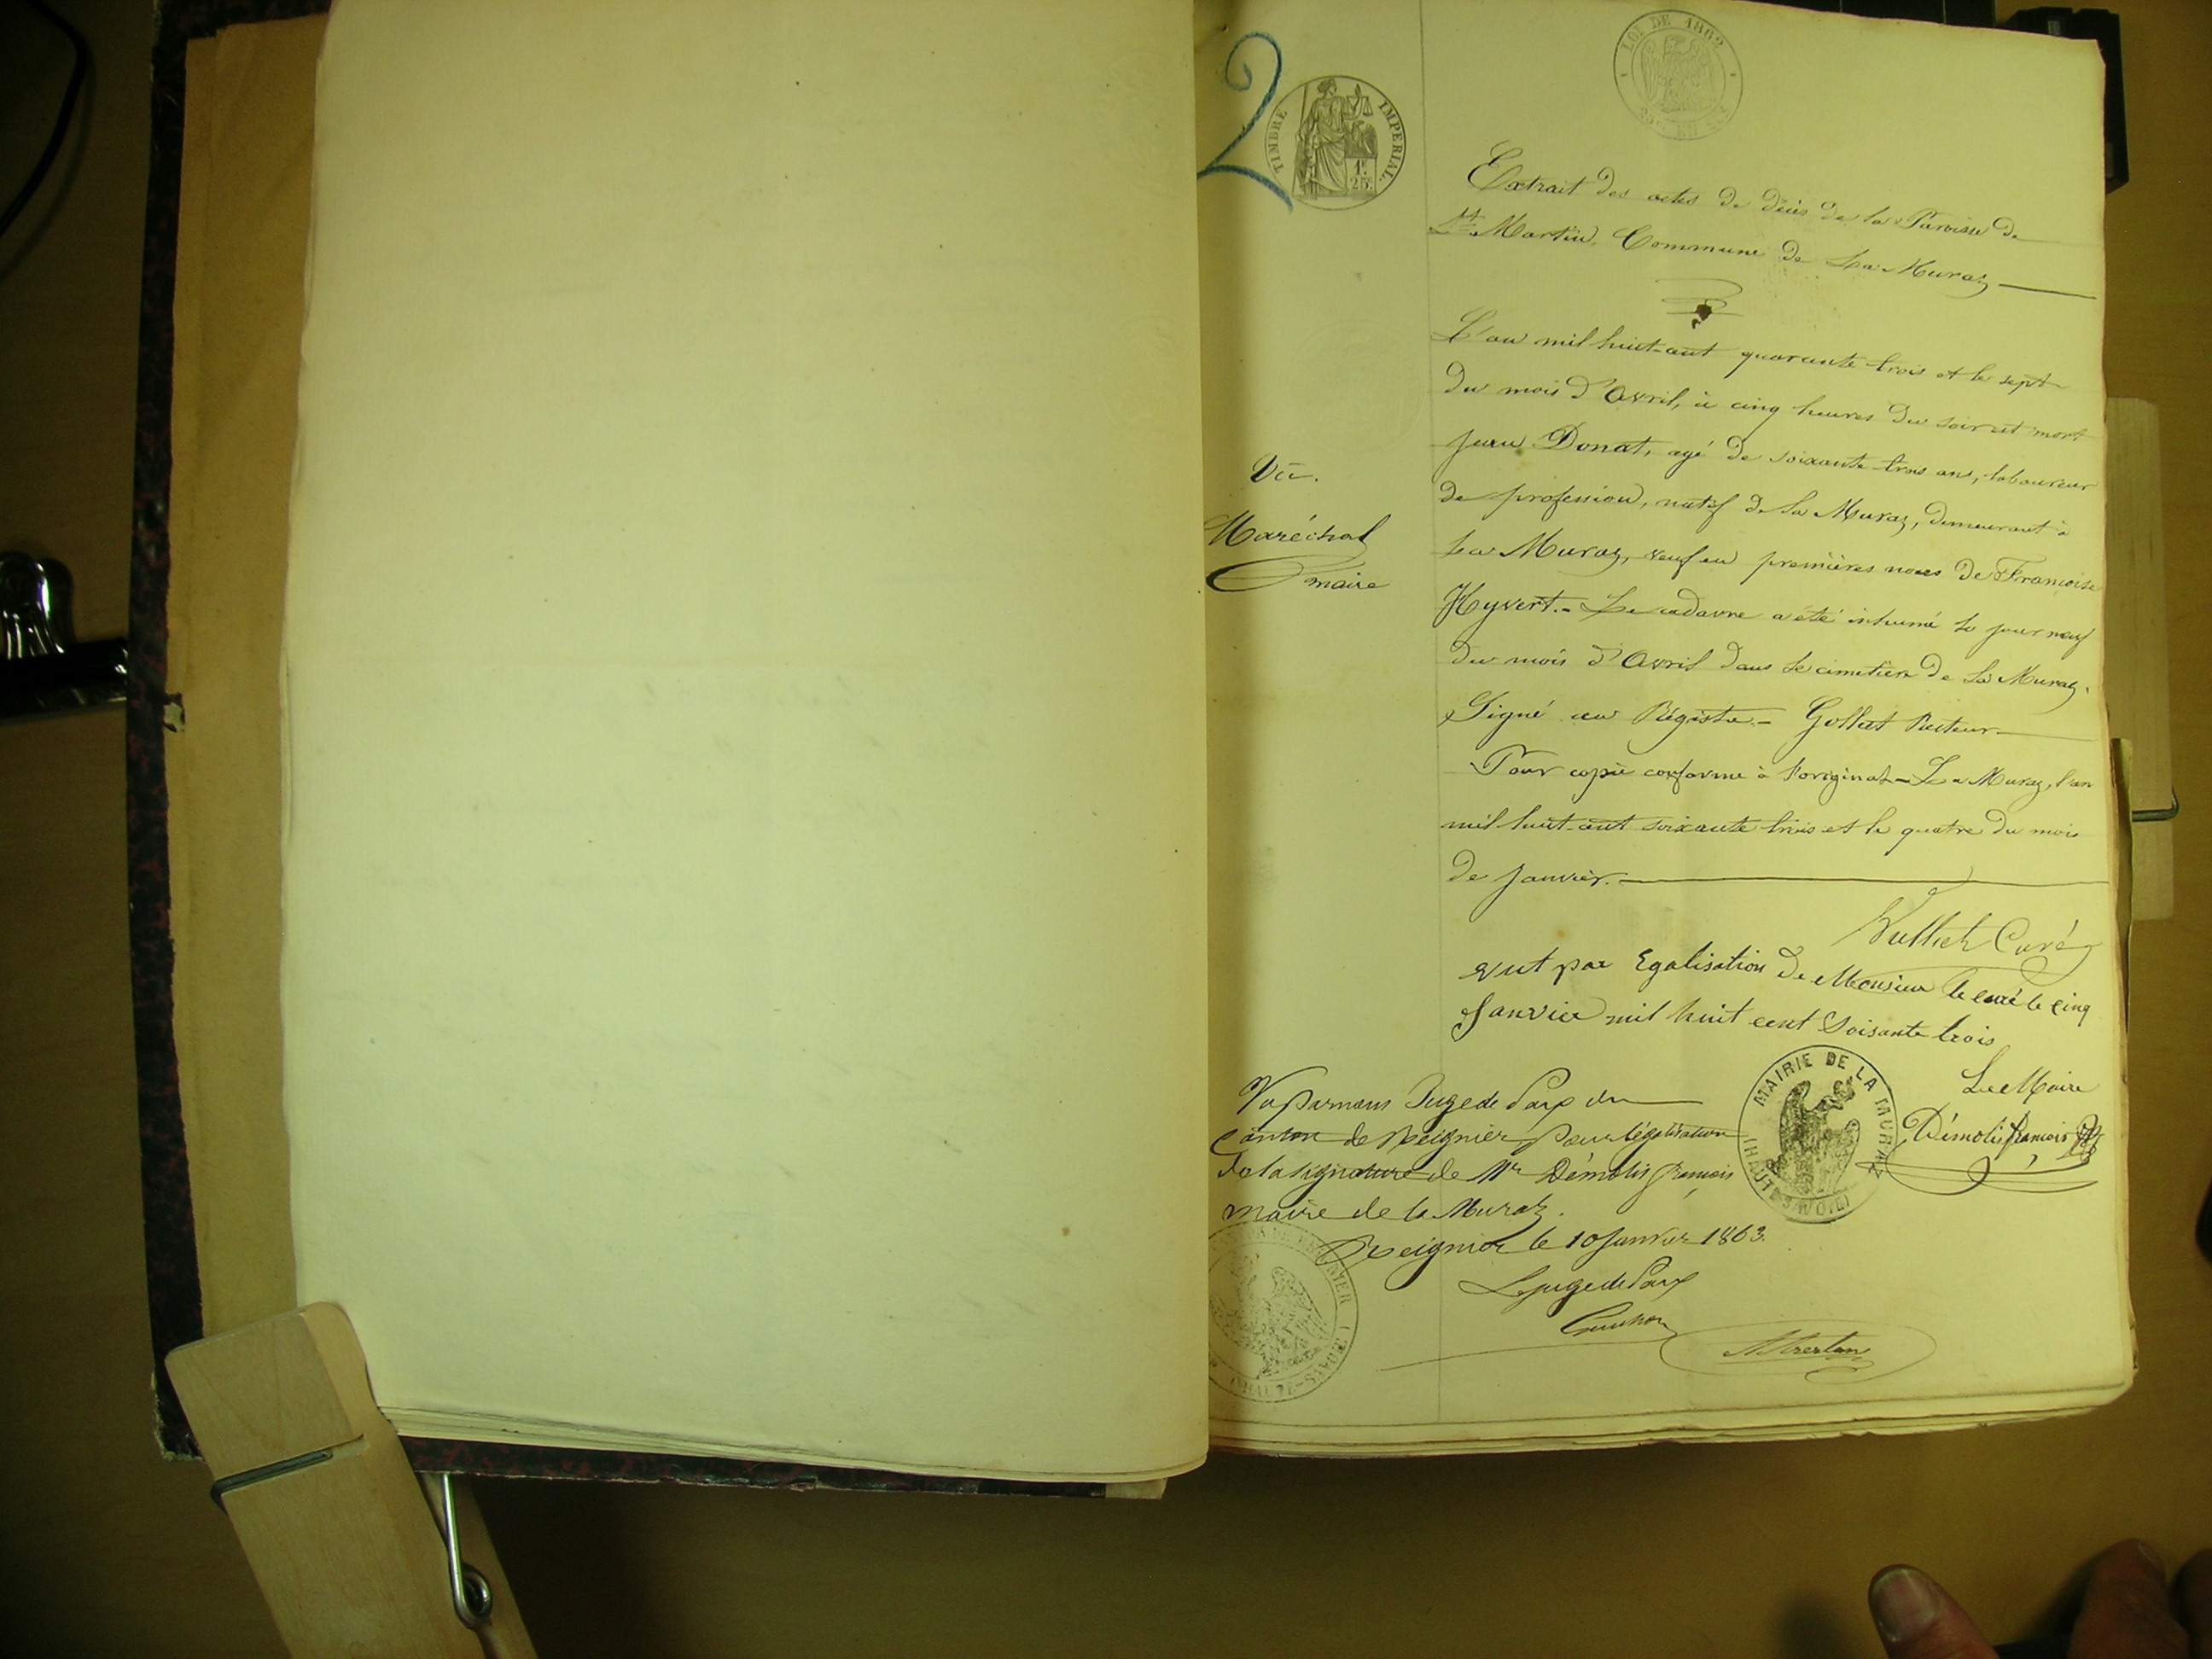 2
TIMBRE IMPERIAL
1F.
25C.
LOI DE 1862
Extrait des actes de décès de la Paroisse de
St Martin, Commune de La Muraz
L'an mil huit-cent quarante trois et le sept
du mois d'Avril, à cinq heures du soir est mort
Jean Donat, agé de soixante-trois ans, laboureur
de profession, natif de La Muraz, demeurant à
La Muraz, veuf en premières noces de Françoise
Hyvert.- Le cadavre a été inhumé le jour neuf
du mois d'Avril dans le cimetière de La Muraz.
Signé au Régistre.- Gollet Recteur
Pour copie conforme à l'original - La Muraz, l'an
mil huit-cent soixante trois et le quatre du mois
de Janvier.
Curé
vut par Egalisation de Monsieur le curé le cinq
Janvier mil huit cent Soisante trois
Le Maire
Démolis françois
MAIRIE DE LA MURAZ
(HAUTE SAVOIE)
Vu.
Maréchal
maire
Vu par nous Juge de Paix du
canton de Reignier pour légalisation
de la signature de Mr Démolis françois
maire de la Muraz.
Reignier le 10 Janvier 1863.
Le juge de Paix
REIGNIER
(HAUTE-SAVOIE)